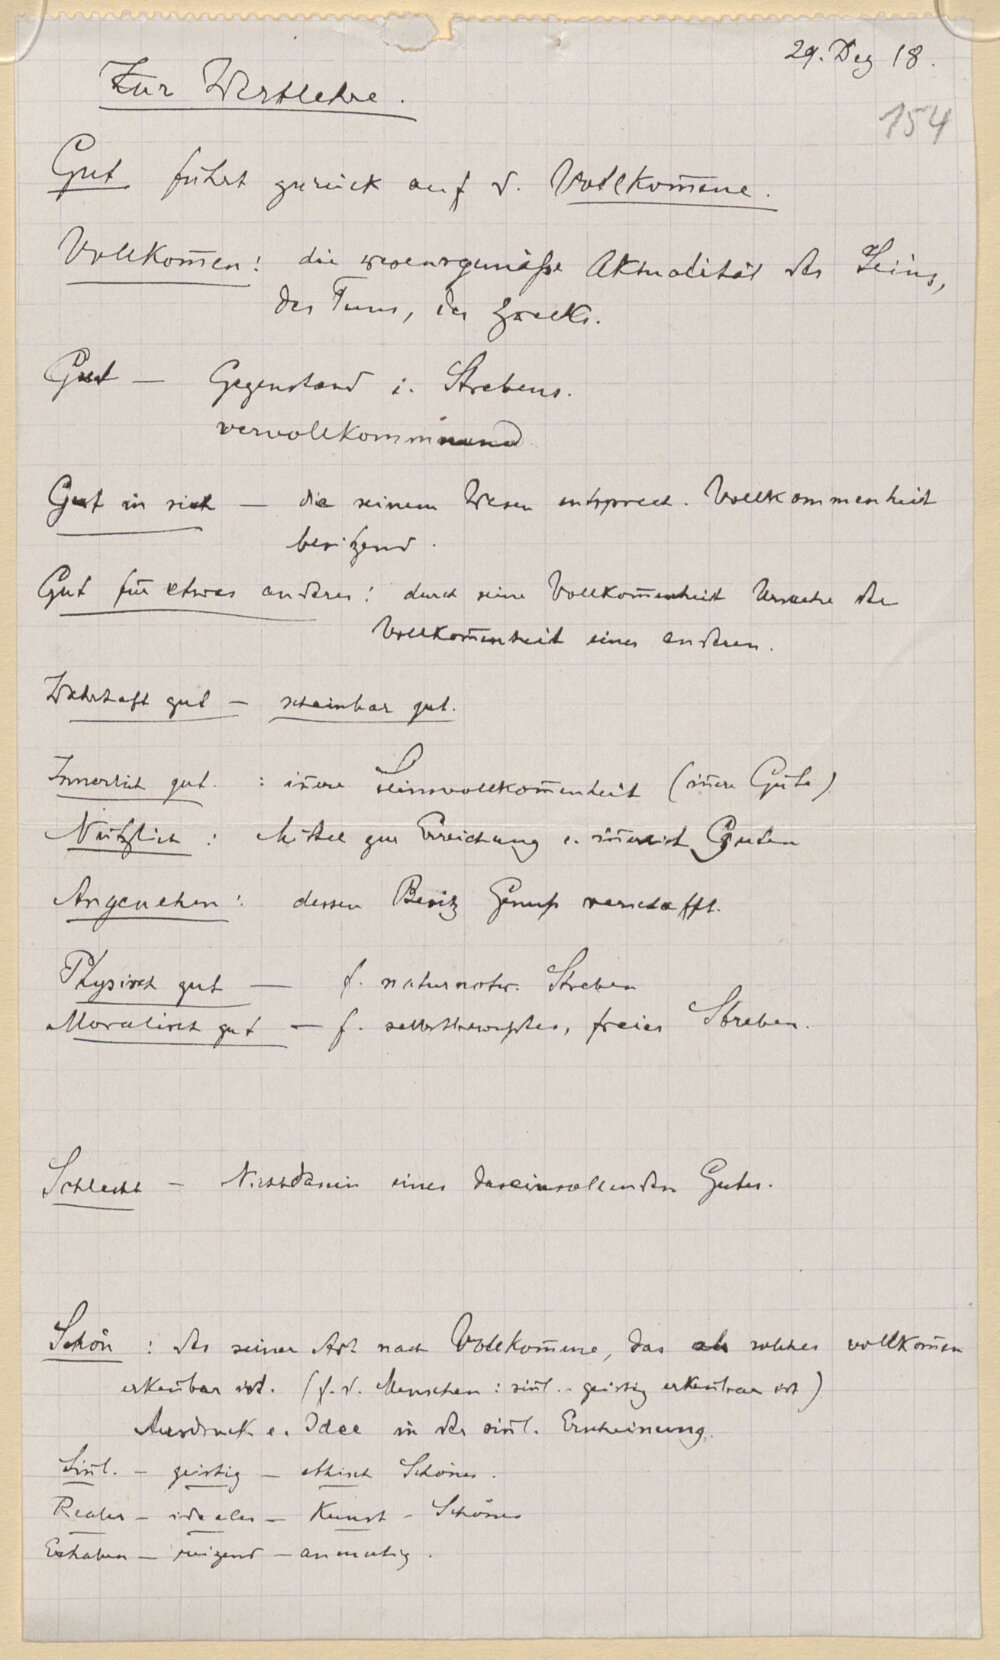 29. Dez 18.
Zur Wertlehre.
154
Gut führt zurück auf d. Vollkom̅ene.
Vollkom̅en: die wesensgemäße Aktualität des Seins,
des Tuns, des Zwecks.
Gut — Gegenstand i. Strebens.
vervollkommnend
Gut in sich — die seinem Wesen entsprech. Vollkommenheit
besitzend.
Gut für etwas anderes: durch seine Vollkom̅enheit Ursache der
Vollkom̅enheit eines anderen.
Wahrhaft gut — scheinbar gut.
Innerlich gut : in̅ere Seinsvollkom̅enheit (in̅ere Güte)
Nützlich : Mittel zur Erreichung e. in̅erlich Guten
Angenehm: dessen Besitz Genuß verschafft.
Physisch gut — f. naturnotw. Streben
Moralisch gut — f. selbstbewußtes, freies Streben.
Schlecht — Nichtdasein eines daseinsollenden Gutes.
Schön : das seiner Art nach Vollkom̅ene, das als solches vollkom̅en
erken̅bar ist. (f. d. Menschen: sin̅l. - geistig erken̅bar ist)
Ausdruck e. Idee in der sin̅l. Erscheinung.
Sin̅l. - geistig - ethisch Schönes.
Reales - ideales - Kunst - Schönes
Erhaben - reizend - anmutig.